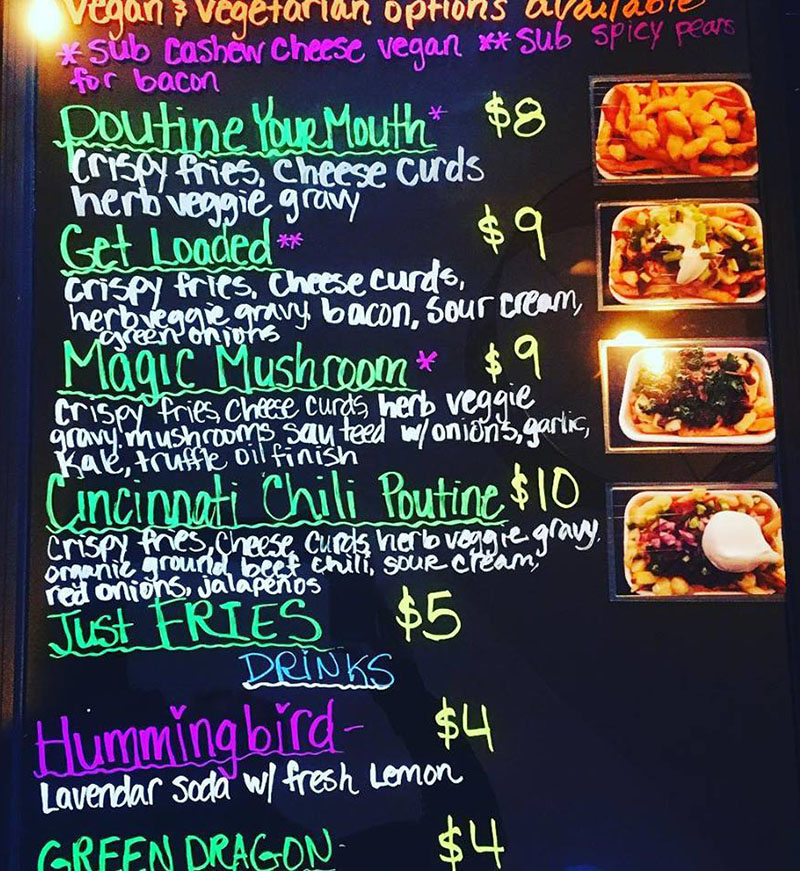 Vegan & Vegetarian options available
* sub cashew cheese vegan ** sub spicy pears
for bacon
Poutine Your Mouth* $8
crispy fries, cheese curds
herb veggie gravy
Get Loaded** $9
crispy fries, cheese curds,
herb veggie gravy bacon, sour cream,
green onions
Magic Mushroom* $9
crispy fries, cheese curds, herb veggie
gravy. mushrooms sauteed w/onions, garlic,
kale, truffle oil finish
Cincinnati Chili Poutine $10
crispy fries, cheese curds, herb veggie gravy.
organic ground beef chili, sour cream,
red onions, jalapeños
Just FRIES $5
DRINKS
Hummingbird- $4
Lavendar soda w/ fresh Lemon
GREEN DRAGON- $4